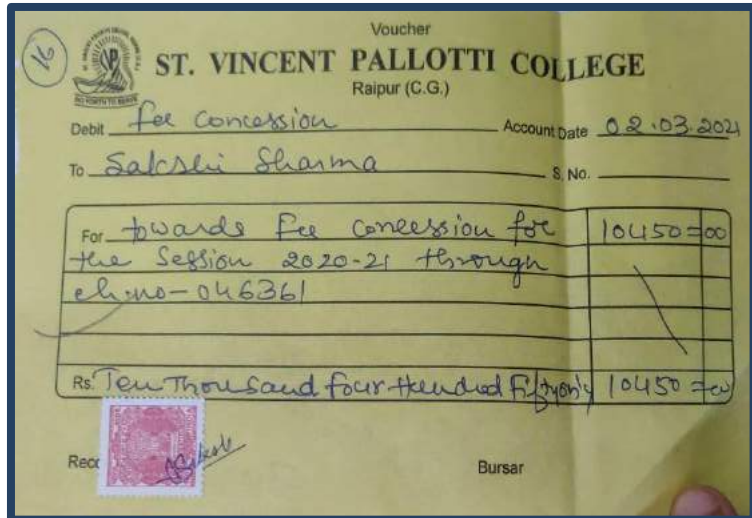 Voucher
16
ST. VINCENT PALLOTTI COLLEGE
Raipur (C.G.)
Debit fee concession Account Date 02.03.2021
To Sakshi Sharma S. No.
For towards fee concession for 10450=00
the Session 2020-21 through
ch.no-046361
Rs. Ten Thousand four Hundred Fifty only 10450=00
Bursar